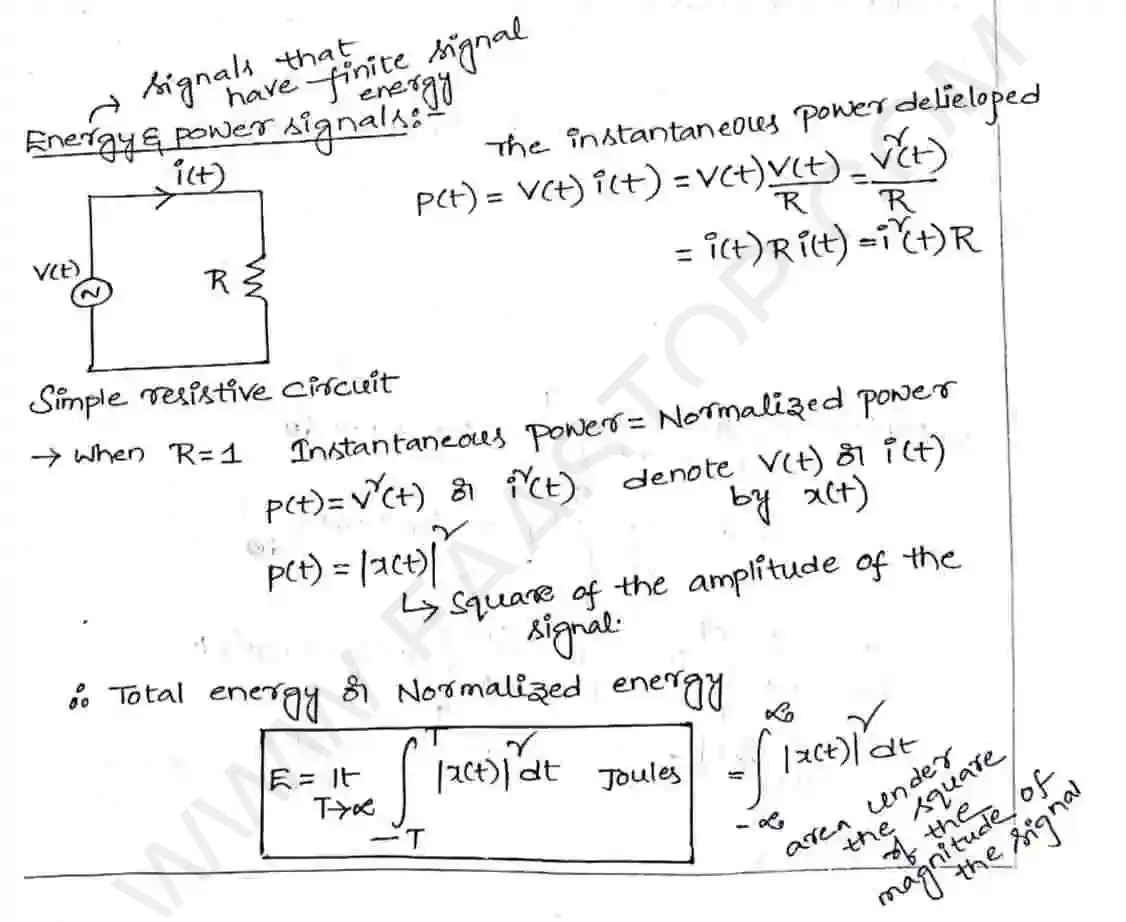 signals that
have finite signal
energy
Energy & power signals:-
i(t)
V(t)
R
The instantaneous power delieloped
P(t) = V(t) i(t) = V(t) V(t)/R = V²(t)/R
= i(t) R i(t) = i²(t) R
Simple resistive circuit
→ When R=1 Instantaneous power = Normalized power
P(t) = V²(t) or i²(t) denote V(t) or i(t)
by x(t)
P(t) = |x(t)|²
↳ Square of the amplitude of the
signal.
∴ Total energy or Normalized energy
E = lt T→∞ ∫_{-T}^{T} |x(t)|² dt Joules = ∫_{-∞}^{∞} |x(t)|² dt
area under
the square
of the
magnitude of
the signal
WWW.FAASTOP.COM